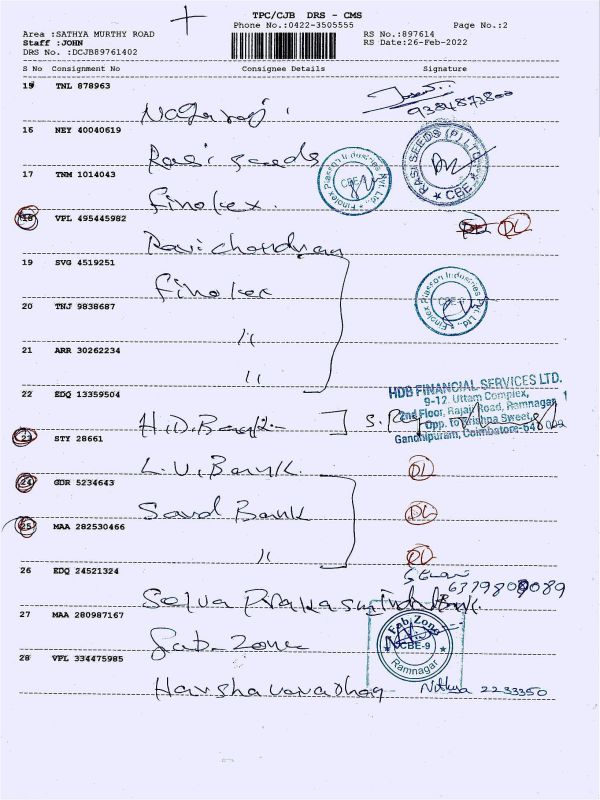 TPC/CJB DRS - CMS
Phone No.:0422-3505555
Page No.:2
Area :SATHYA MURTHY ROAD
RS No.:897614
Staff :JOHN
RS Date:26-Feb-2022
DRS No. :DCJB89761402
S No Consignment No Consignee Details Signature
15 TNL 878963
Nagaraj
9384873800
16 NEY 40040619
Rasi seeds
RASI SEEDS (P) LTD. CBE
17 TNM 1014043
Finolex
Finolex Plasson Industries Pvt. Ltd., CBE-9
18 VPL 495445982
Ravichandran
DL
19 SVG 4519251
Finolex
Finolex Plasson Industries Pvt. Ltd., CBE-9
20 TNJ 9838687
"
21 ARR 30262234
"
22 EDQ 13359504
H.D. Bank
HDB FINANCIAL SERVICES LTD.
9-12, Uttam Complex,
2nd Floor, Rajaji Road, Ramnagar,
Opp. to Krishna Sweet,
Gandhipuram, Coimbatore-641 009
23 STY 28661
L.V. Bank
DL
24 GDR 5234643
DL
25 MAA 282530466
"
DL
26 EDQ 24521324
Selva Prakash Indus Bank
27 MAA 280987167
Fab-Zone
Fab Zone CBE-9 Ramnagar
28 VPL 334475985
Harshavaradhan
Nithya 2233350